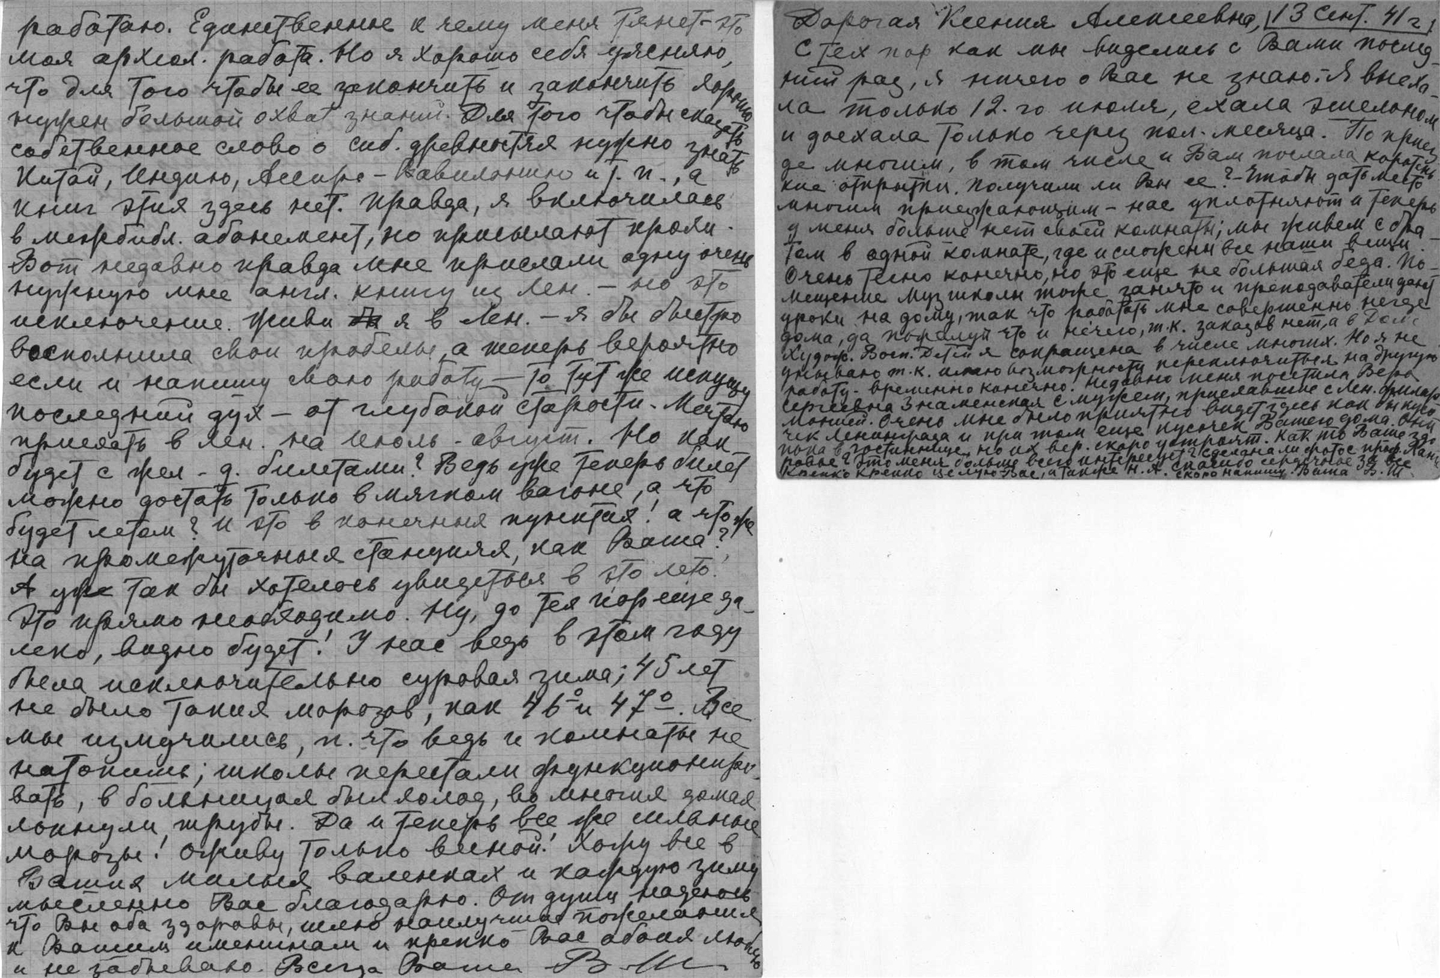 работаю. Единственное к чему меня тянет – это
моя археол. работа. Но я хорошо себе уясняю,
что для того чтобы ее закончить и закончить хорошо
нужен большой охват знаний. Для того чтобы сказать
собственное слово о сиб. древностях нужно знать
Китай, Индию, Ассиро-Вавилонию и т. п., а
книг этих здесь нет. Правда, я включилась
в межбибл. абонемент, но присылают
Вот недавно правда мне прислали одну очень
нужную мне англ. книгу из Лен. – но это
исключение. Живи я в Лен. – я бы быстро
восполнила свои пробелы, а теперь вероятно
если и напишу свою работу – то тут же испущу
последний дух – от глубокой старости. Мечтаю
приехать в Лен. на июль – август. Но как
будет с жел-д. билетами? Ведь уже теперь билет
можно достать только в мягком вагоне, а что
будет летом? И это в конечных пунктах! а что же
на промежуточных станциях, как Ваша?
А уж так бы хотелось увидеться в это лето.
Это прямо необходимо. Ну, до тех пор еще да-
леко, видно будет! У нас ведь в этом году
была исключительно суровая зима; 45 лет
не было таких морозов, как 46° и 47°. Все
мы измучились, п. что ведь и комнаты не
натопишь; школы перестали функциониро-
вать, в больницах был холод, во многих домах
лопнули трубы. Да и теперь все же сильные
морозы! Оживу только весной! Хожу все в
Ваших милых валенках и каждую зиму
мысленно Вас благодарю. От души надеюсь
что Вы оба здоровы, шлю наилучшие пожелания
к Вашим именинам и крепко Вас обоих люблю
и не забываю. Всегда Ваша В. Ш.
Дорогая Ксения Алексеевна, 13 сент. 41 г.
С тех пор как мы виделись с Вами послед-
ний раз, я ничего о Вас не знаю. Я выеха-
ла только 12-го июля, ехала эшелоном
и доехала только через пол-месяца. По приез-
де многим, в том числе и Вам послала коротень-
кие открытки. Получили ли Вы ее? – Чтобы дать место
многим приезжающим – нас уплотняют и теперь
у меня больше нет своей комнаты; мы живем с бра-
том в одной комнате, где и сложены все наши вещи.
Очень тесно конечно, но это еще не большая беда. По-
мещение Муз. школы тоже занято и преподаватели дают
уроки на дому, так что работать мне совершенно негде
дома, да пожалуй что и нечего, т. к. заказов нет, а в Доме
Худож. Восп. Детей я сокращена в числе многих. Но я не
унываю т. к. имею возможность переключиться на другую
работу – временно конечно. Недавно меня посетила Вера
Сергеевна Знаменская с мужем, приехавшие с Лен. Филар-
монией. Очень мне было приятно видеть здесь как бы кусо-
чек Ленинграда и при том еще кусочек Вашего дома. Они
пока в гостинице, но их вер. скоро устроят. Как-то Ваше здо-
ровье? Это меня больше всего интересует.
Крепко крепко целую Вас, а также Н. А. спасибо сердечное за все
скоро напишу. Ваша В. Ш.